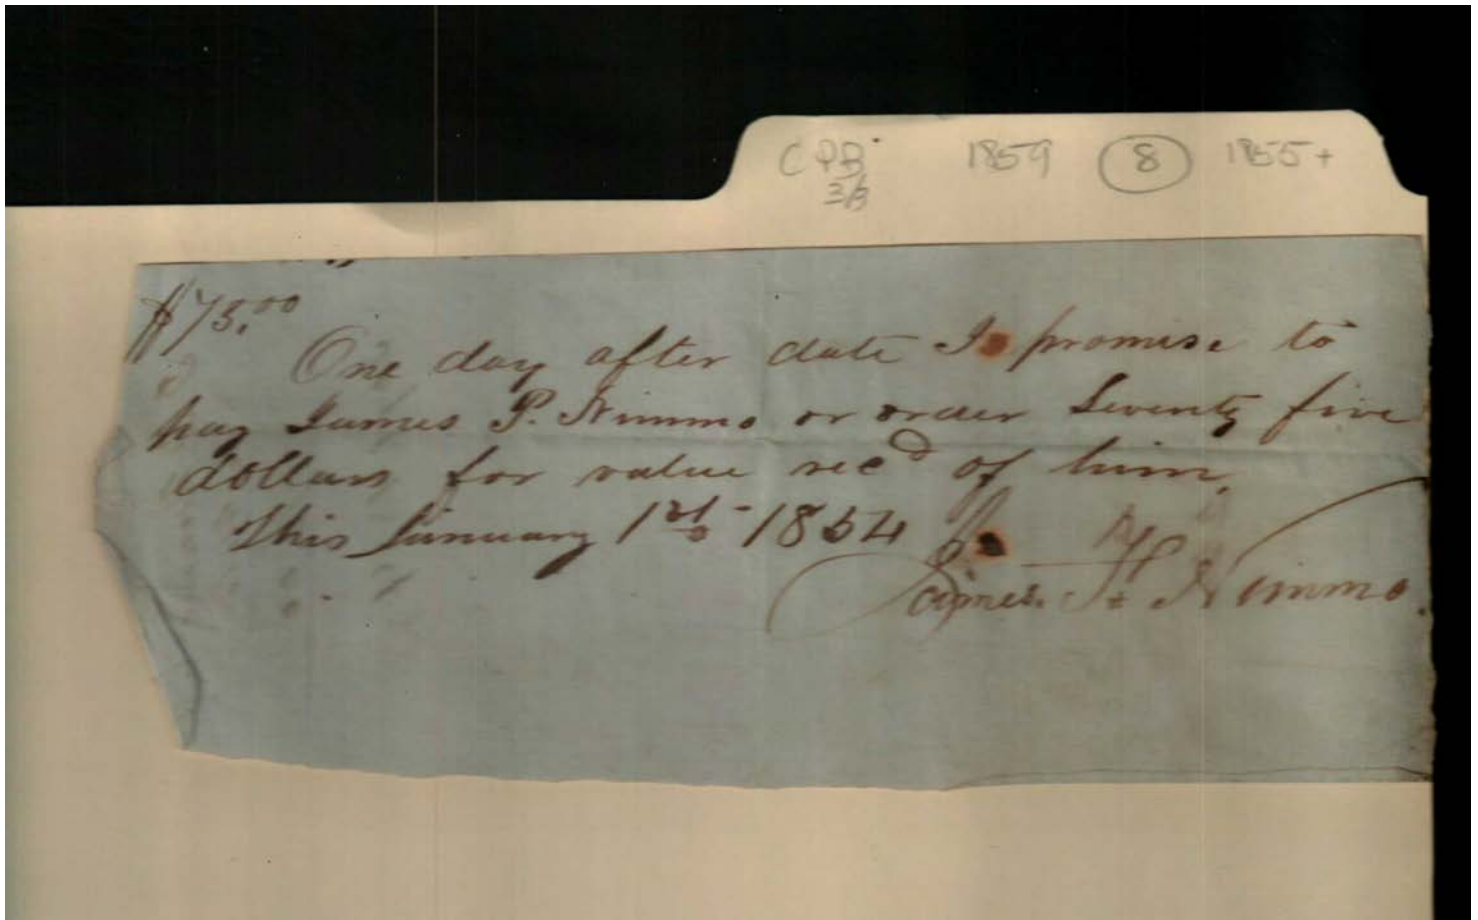 CPB 1859 8 1855+
3/8
$75.00
One day after date I promise to
pay James P. Nimmo or order Seventy five
dollars for value recd of him,
This January 1st 1854
James H Nimmo.